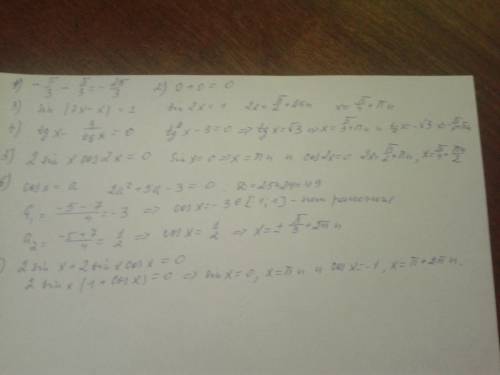 1) -π/3 - π/3 = -2π/3   2) 0+0=0
3) sin (3x-x)=1   sin 2x=1   2x=π/2+2πn   x=π/4+πn
4) tgx - 3/tgx = 0   tg²x-3=0 => tgx=√3 => x=π/3+πn и tgx=-√3
5) 2 sin x cos2x=0   sinx=0 => x=πn и cos2x=0   2x=π/2+πn, x=π/4+πn/2
6) cosx=a   2a²+5a-3=0   D=25+24=49
a₁=(-5-7)/4=-3 => cosx=-3∉[-1,1] - нет решения
a₂=(-5+7)/4=1/2 => cosx=1/2 => x=±π/3+2πn
) 2 sinx+2 sinx cosx=0
2 sinx(1+cosx)=0 => sinx=0, x=πn и cosx=-1, x=π+2πn.